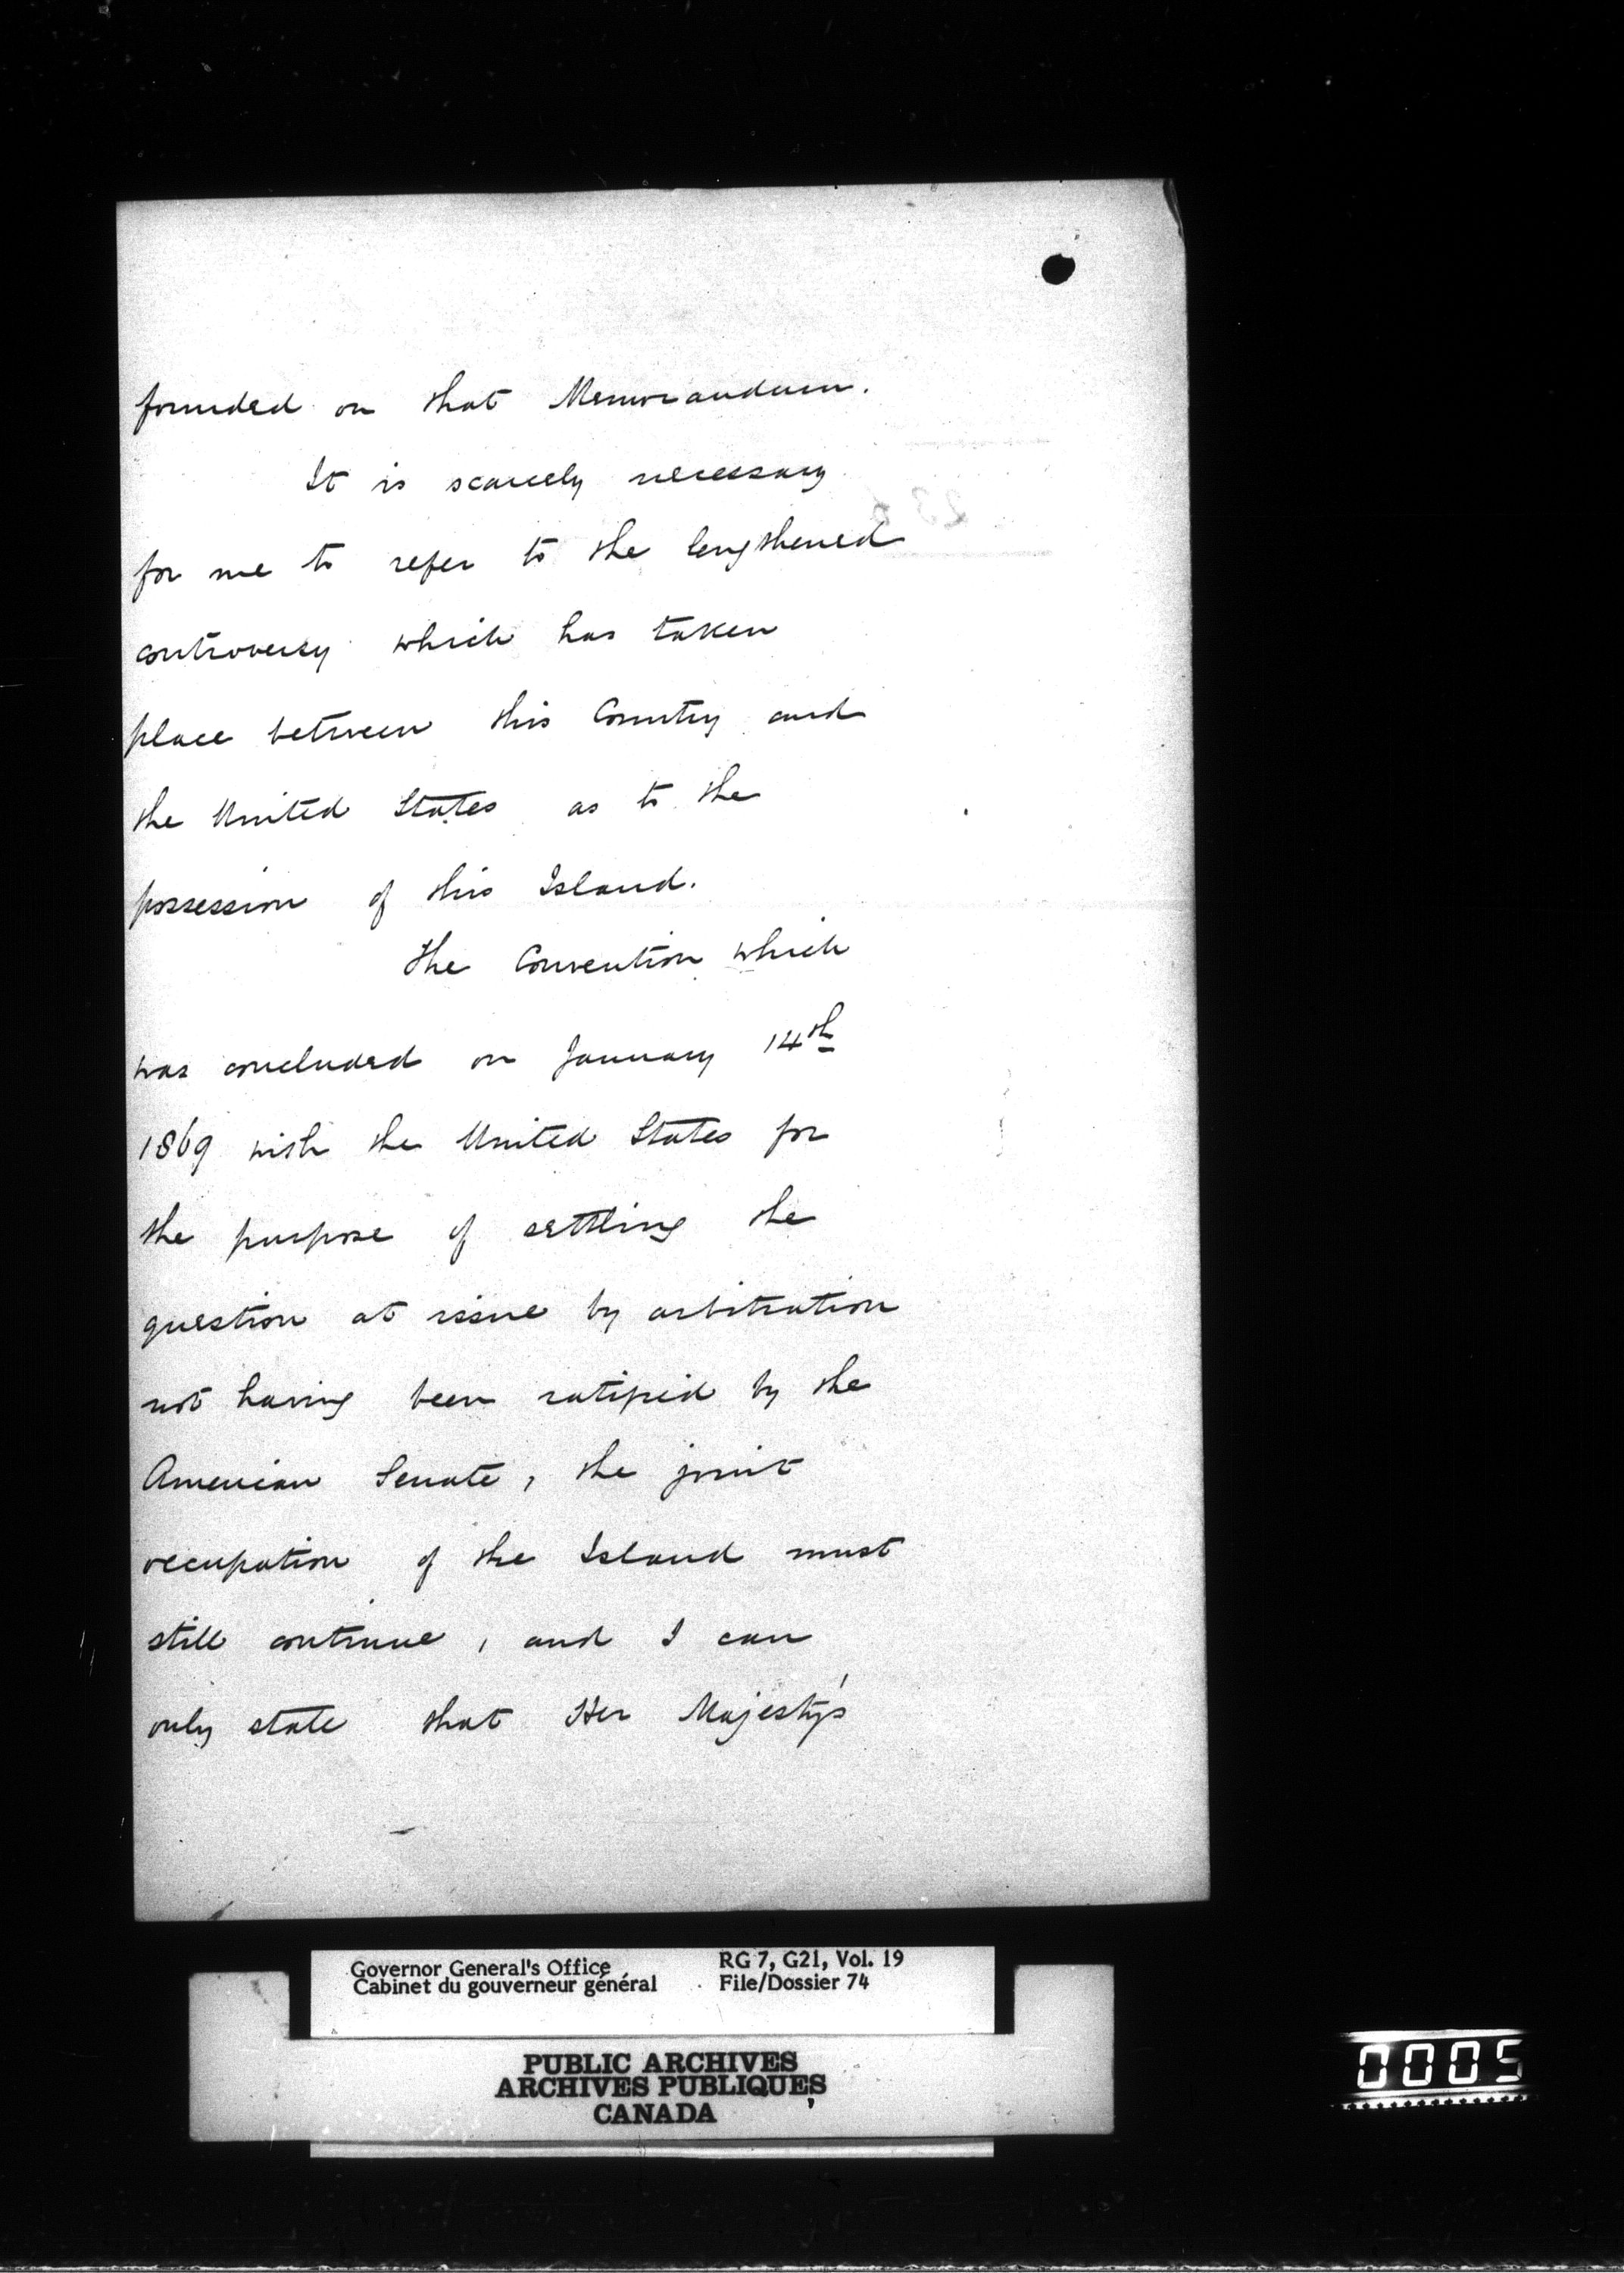 founded on that Memorandum.
It is scarcely necessary
for me to refer to the lengthened
controversy which has taken
place between this Country and
the United States as to the
possession of this Island.
The Convention which
was concluded on January 14th
1869 with the United States for
the purpose of settling the
question at issue by arbitration
not having been ratified by the
American Senate, the joint
occupation of the Island must
still continue, and I can
only state that Her Majesty's
Governor General's Office
Cabinet du gouverneur général
RG 7, G21, Vol. 19
File/Dossier 74
PUBLIC ARCHIVES
ARCHIVES PUBLIQUES
CANADA
0005